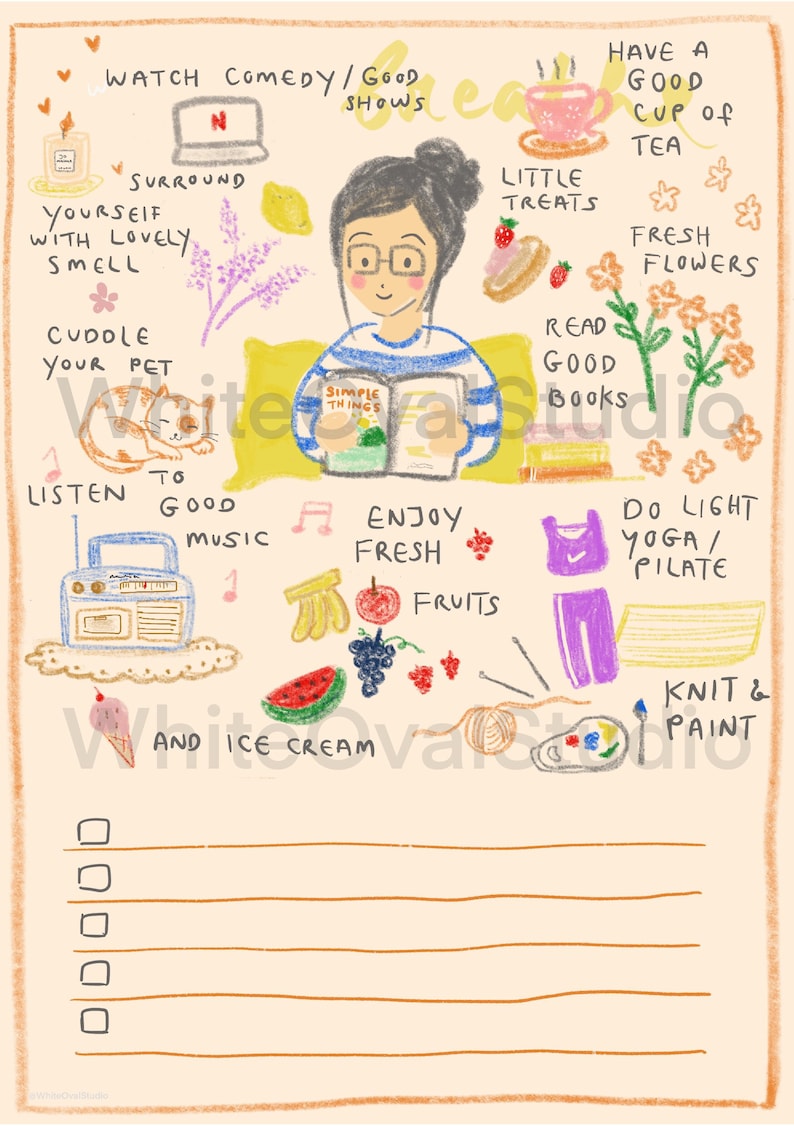 breathe
WATCH COMEDY/GOOD
SHOWS
N
HAVE A
GOOD
CUP OF
TEA
SURROUND
YOURSELF
WITH LOVELY
SMELL
LITTLE
TREATS
FRESH
FLOWERS
CUDDLE
YOUR PET
READ
GOOD
BOOKS
SIMPLE
THINGS
WhiteOvalStudio
LISTEN TO
GOOD
MUSIC
ENJOY
FRESH
FRUITS
DO LIGHT
YOGA/
PILATE
AND ICE CREAM
KNIT &
PAINT
WhiteOvalStudio
@WhiteOvalStudio